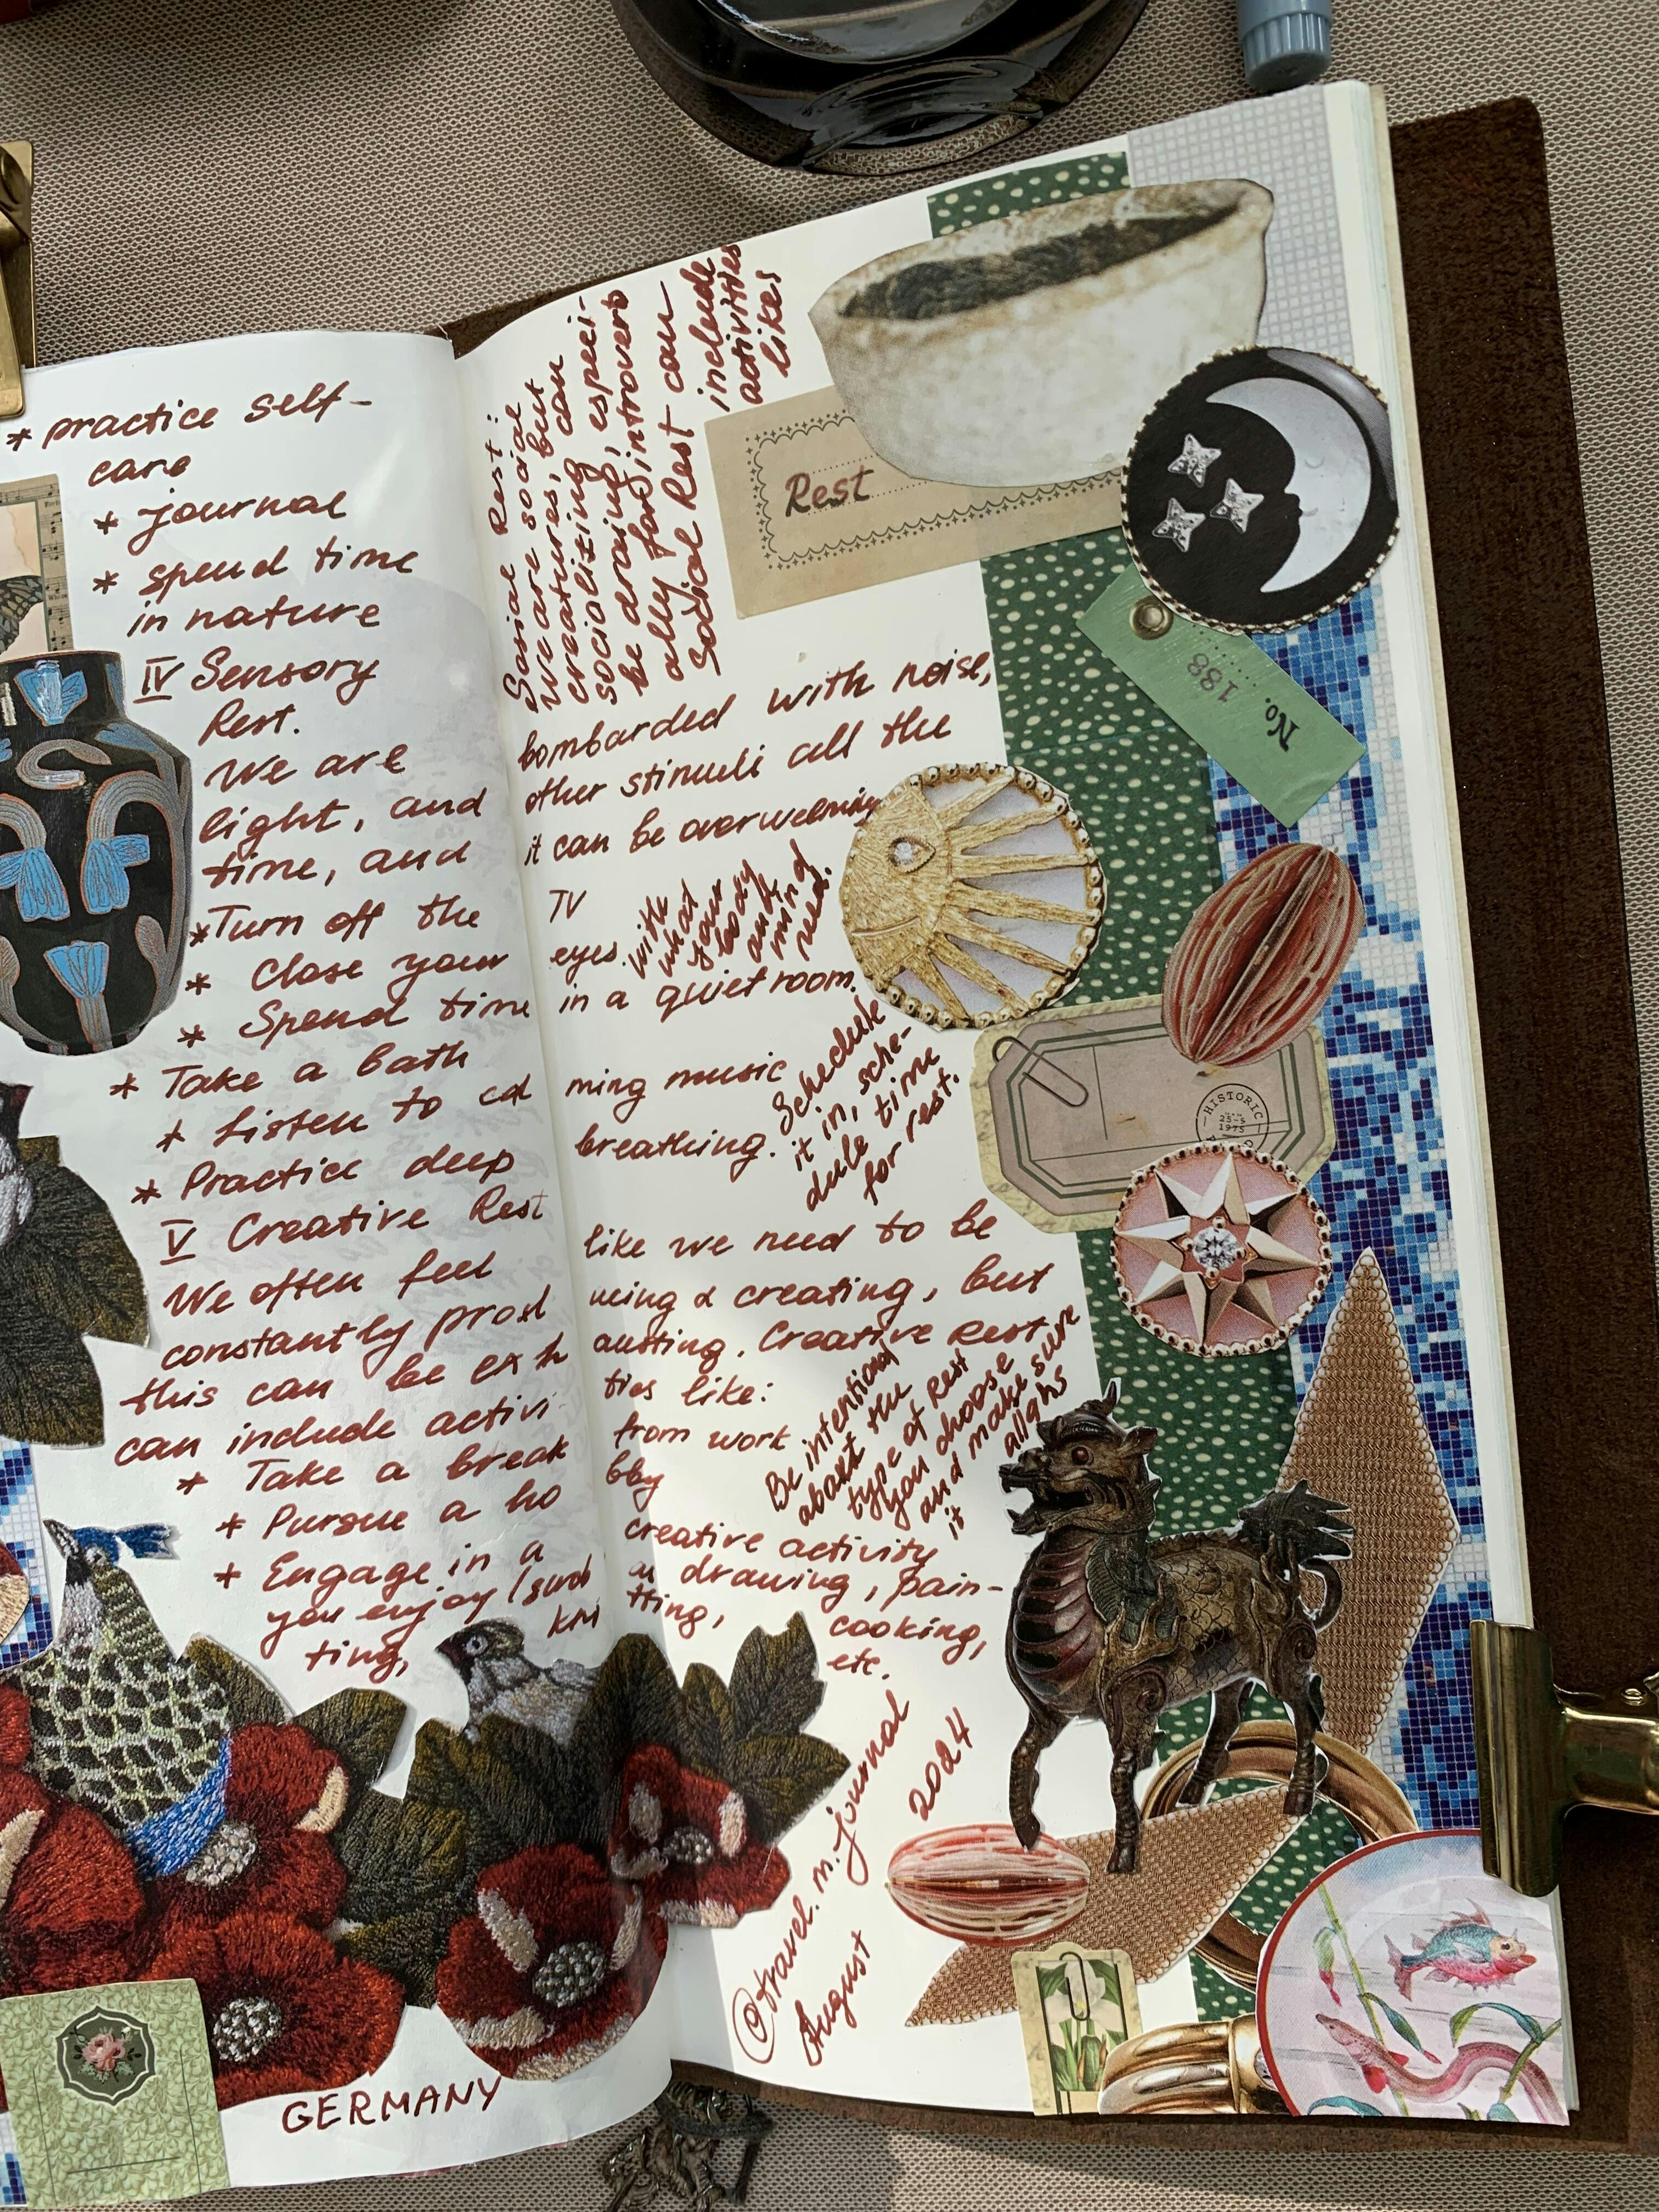 * practice self-
care
* journal
* spend time
in nature
IV Sensory
Rest.
We are bombarded with noise,
light, and other stimuli all the
time, and it can be overwelming
*Turn off the TV
* Close your eyes.
* Spend time in a quiet room.
* Take a bath
* Listen to cal ming music
* Practice deep breathing.
V Creative Rest
We often feel like we need to be
constantly prod ucing & creating, but
this can be exh austing. Creative Rest
can include activi- ties like:
* Take a break from work
* Pursue a ho bby
* Engage in a creative activity
you enjoy (such as drawing, pain-
ting, kni tting, cooking,
etc.
Sosial Rest:
We are social
creatures, but
socialiting can
be draing, especi-
ally for introverts
Social Rest can
include
activities
likes
Rest
No. 188
Schedule
it in, sche-
dule time
for rest.
HISTORIC
25-5
1975
Be intentional
about the
type of Rest
you choose
and make sure
it allighs
with
what
your
body
and
mind
need.
@travel.m.journal
August 2024
GERMANY